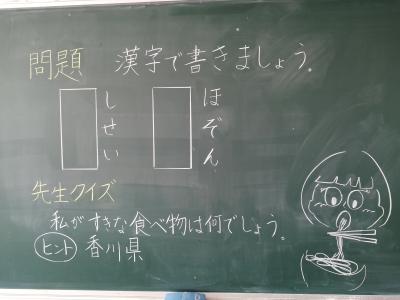 問題 漢字で書きましょう。
ほぞん
しせい
先生クイズ
私がすきな食べ物は何でしょう。
ヒント 香川県